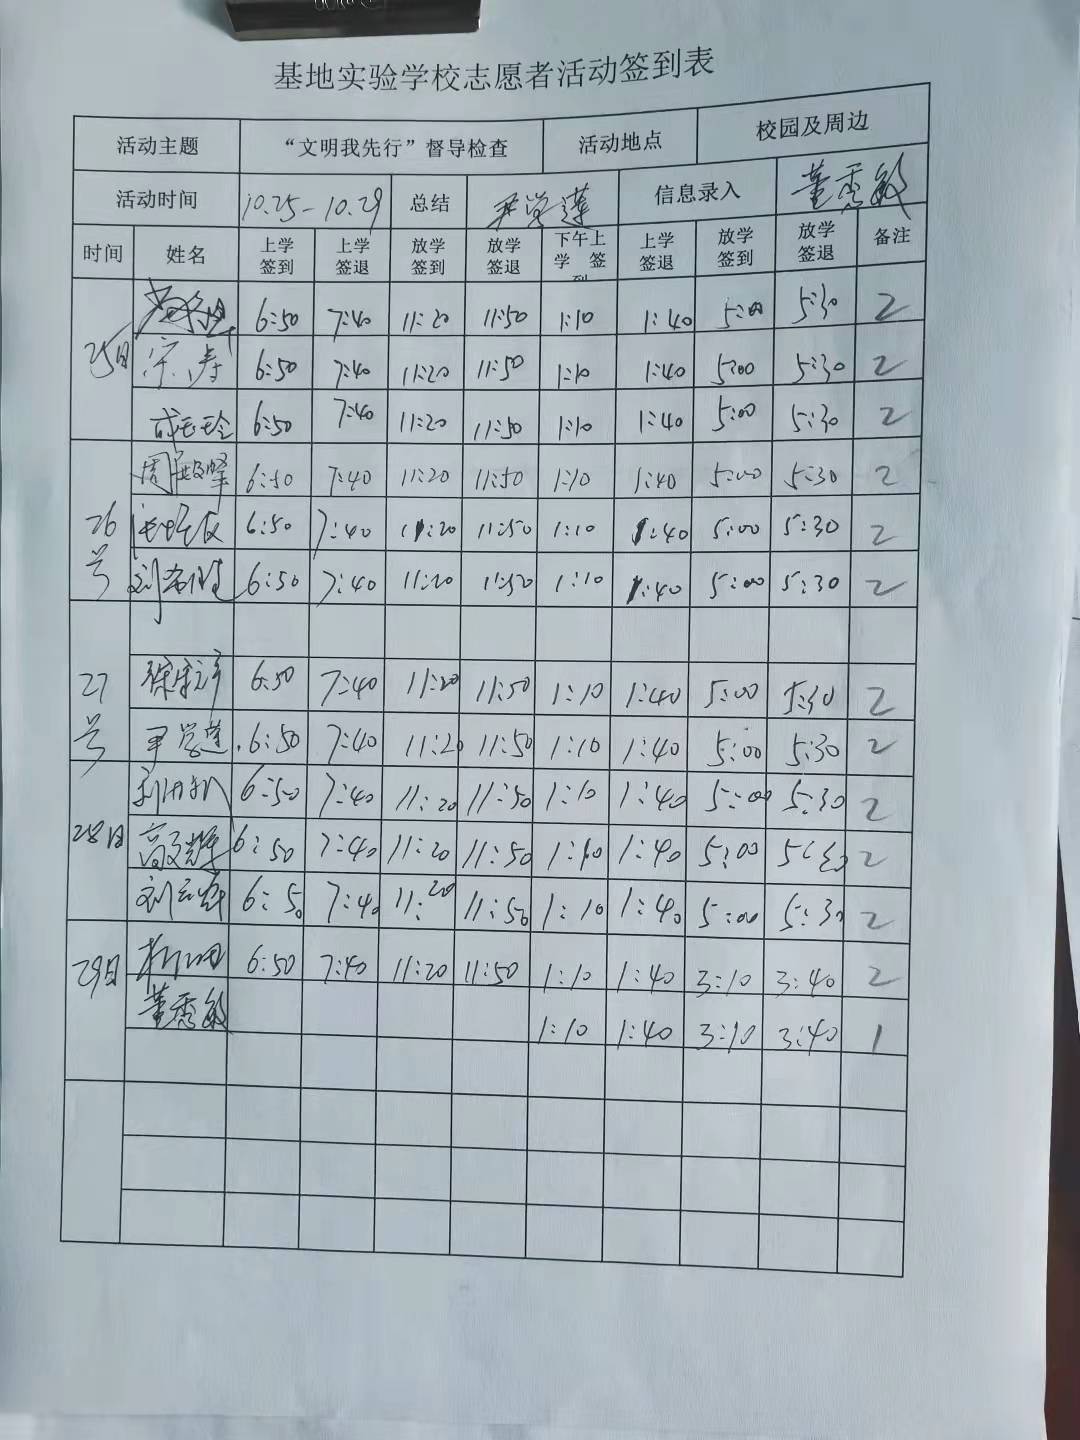 基地实验学校志愿者活动签到表
活动主题 “文明我先行”督导检查 活动地点 校园及周边
活动时间 10.25-10.29 总结 尹学莲 信息录入 董秀敏
时间 姓名 上学签到 上学签退 放学签到 放学签退 下午上学 签到 上学签退 放学签到 放学签退 备注
25日 6:50 7:40 11:20 11:50 1:10 1:40 5:00 5:30 2
宗涛 6:50 7:40 11:20 11:50 1:10 1:40 5:00 5:30 2
6:50 7:40 11:20 11:50 1:10 1:40 5:00 5:30 2
26号 周 6:50 7:40 11:20 11:50 1:10 1:40 5:00 5:30 2
6:50 7:40 11:20 11:50 1:10 1:40 5:00 5:30 2
刘 6:50 7:40 11:20 11:50 1:10 1:40 5:00 5:30 2
27号
6:50 7:40 11:20 11:50 1:10 1:40 5:00 5:30 2
尹学莲 6:50 7:40 11:20 11:50 1:10 1:40 5:00 5:30 2
28日 6:50 7:40 11:20 11:50 1:10 1:40 5:00 5:30 2
高文辉 6:50 7:40 11:20 11:50 1:10 1:40 5:00 5:30 2
刘 6:50 7:40 11:20 11:50 1:10 1:40 5:00 5:30 2
29日 6:50 7:40 11:20 11:50 1:10 1:40 3:10 3:40 2
董秀敏 1:10 1:40 3:10 3:40 1